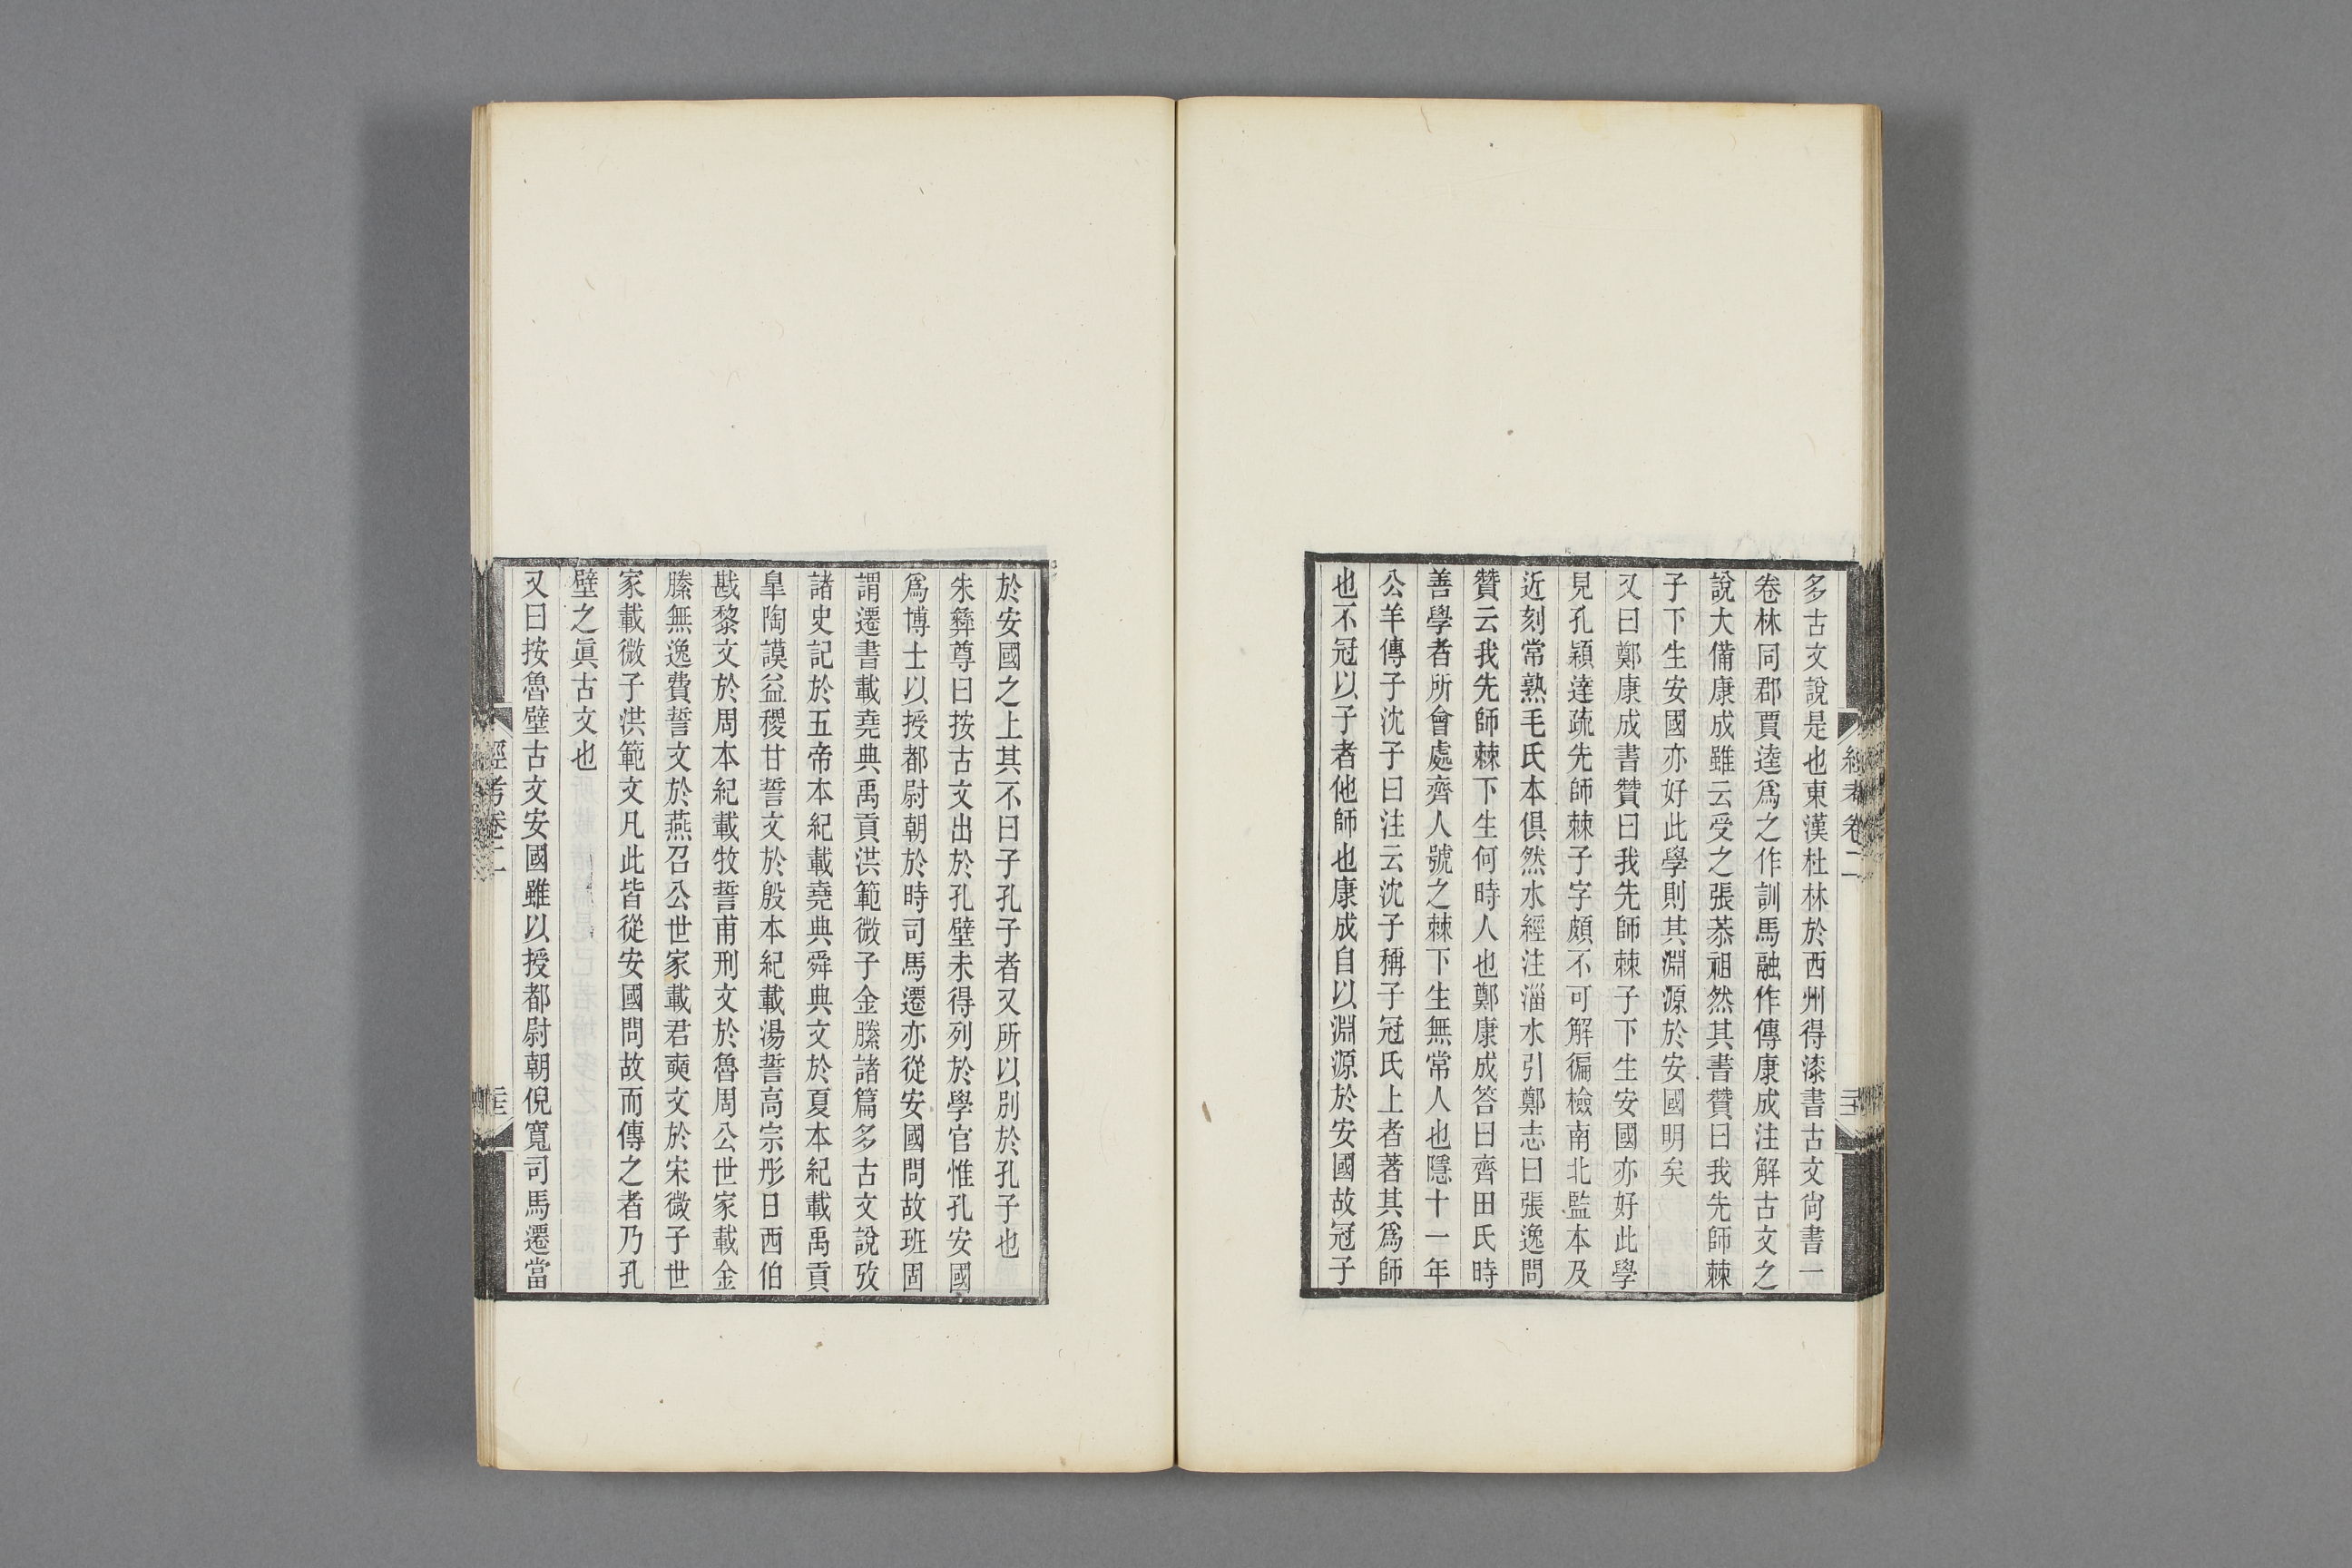 多古文說是也東漢杜林於西州得漆書古文尙書一
卷林同郡賈逵爲之作訓馬融作傳康成注解古文之
說大備康成雖云受之張恭祖然其書贊曰我先師棘
子下生安國亦好此學則其淵源於安國明矣
又曰鄭康成書贊曰我先師棘子下生安國亦好此學
見孔穎達疏先師棘子字頗不可解徧檢南北監本及
近刻常熟毛氏本俱然水經注淄水引鄭志曰張逸問
贊云我先師棘下生何時人也鄭康成答曰齊田氏時
善學者所會處齊人號之棘下生無常人也隱十一年
公羊傳子沈子曰注云沈子稱子冠氏上者著其爲師
也不冠以子者他師也康成自以淵源於安國故冠子
經考卷二
於安國之上其不曰子孔子者又所以別於孔子也
朱彝尊曰按古文出於孔壁未得列於學官惟孔安國
爲博士以授都尉朝於時司馬遷亦從安國問故班固
謂遷書載堯典禹貢洪範微子金縢諸篇多古文說攷
諸史記於五帝本紀載堯典舜典文於夏本紀載禹貢
皐陶謨益稷甘誓文於殷本紀載湯誓高宗肜日西伯
戡黎文於周本紀載牧誓甫刑文於魯周公世家載金
縢無逸費誓文於燕召公世家載君奭文於宋微子世
家載微子洪範文凡此皆從安國問故而傳之者乃孔
壁之眞古文也
又曰按魯壁古文安國雖以授都尉朝倪寬司馬遷當
經考卷二